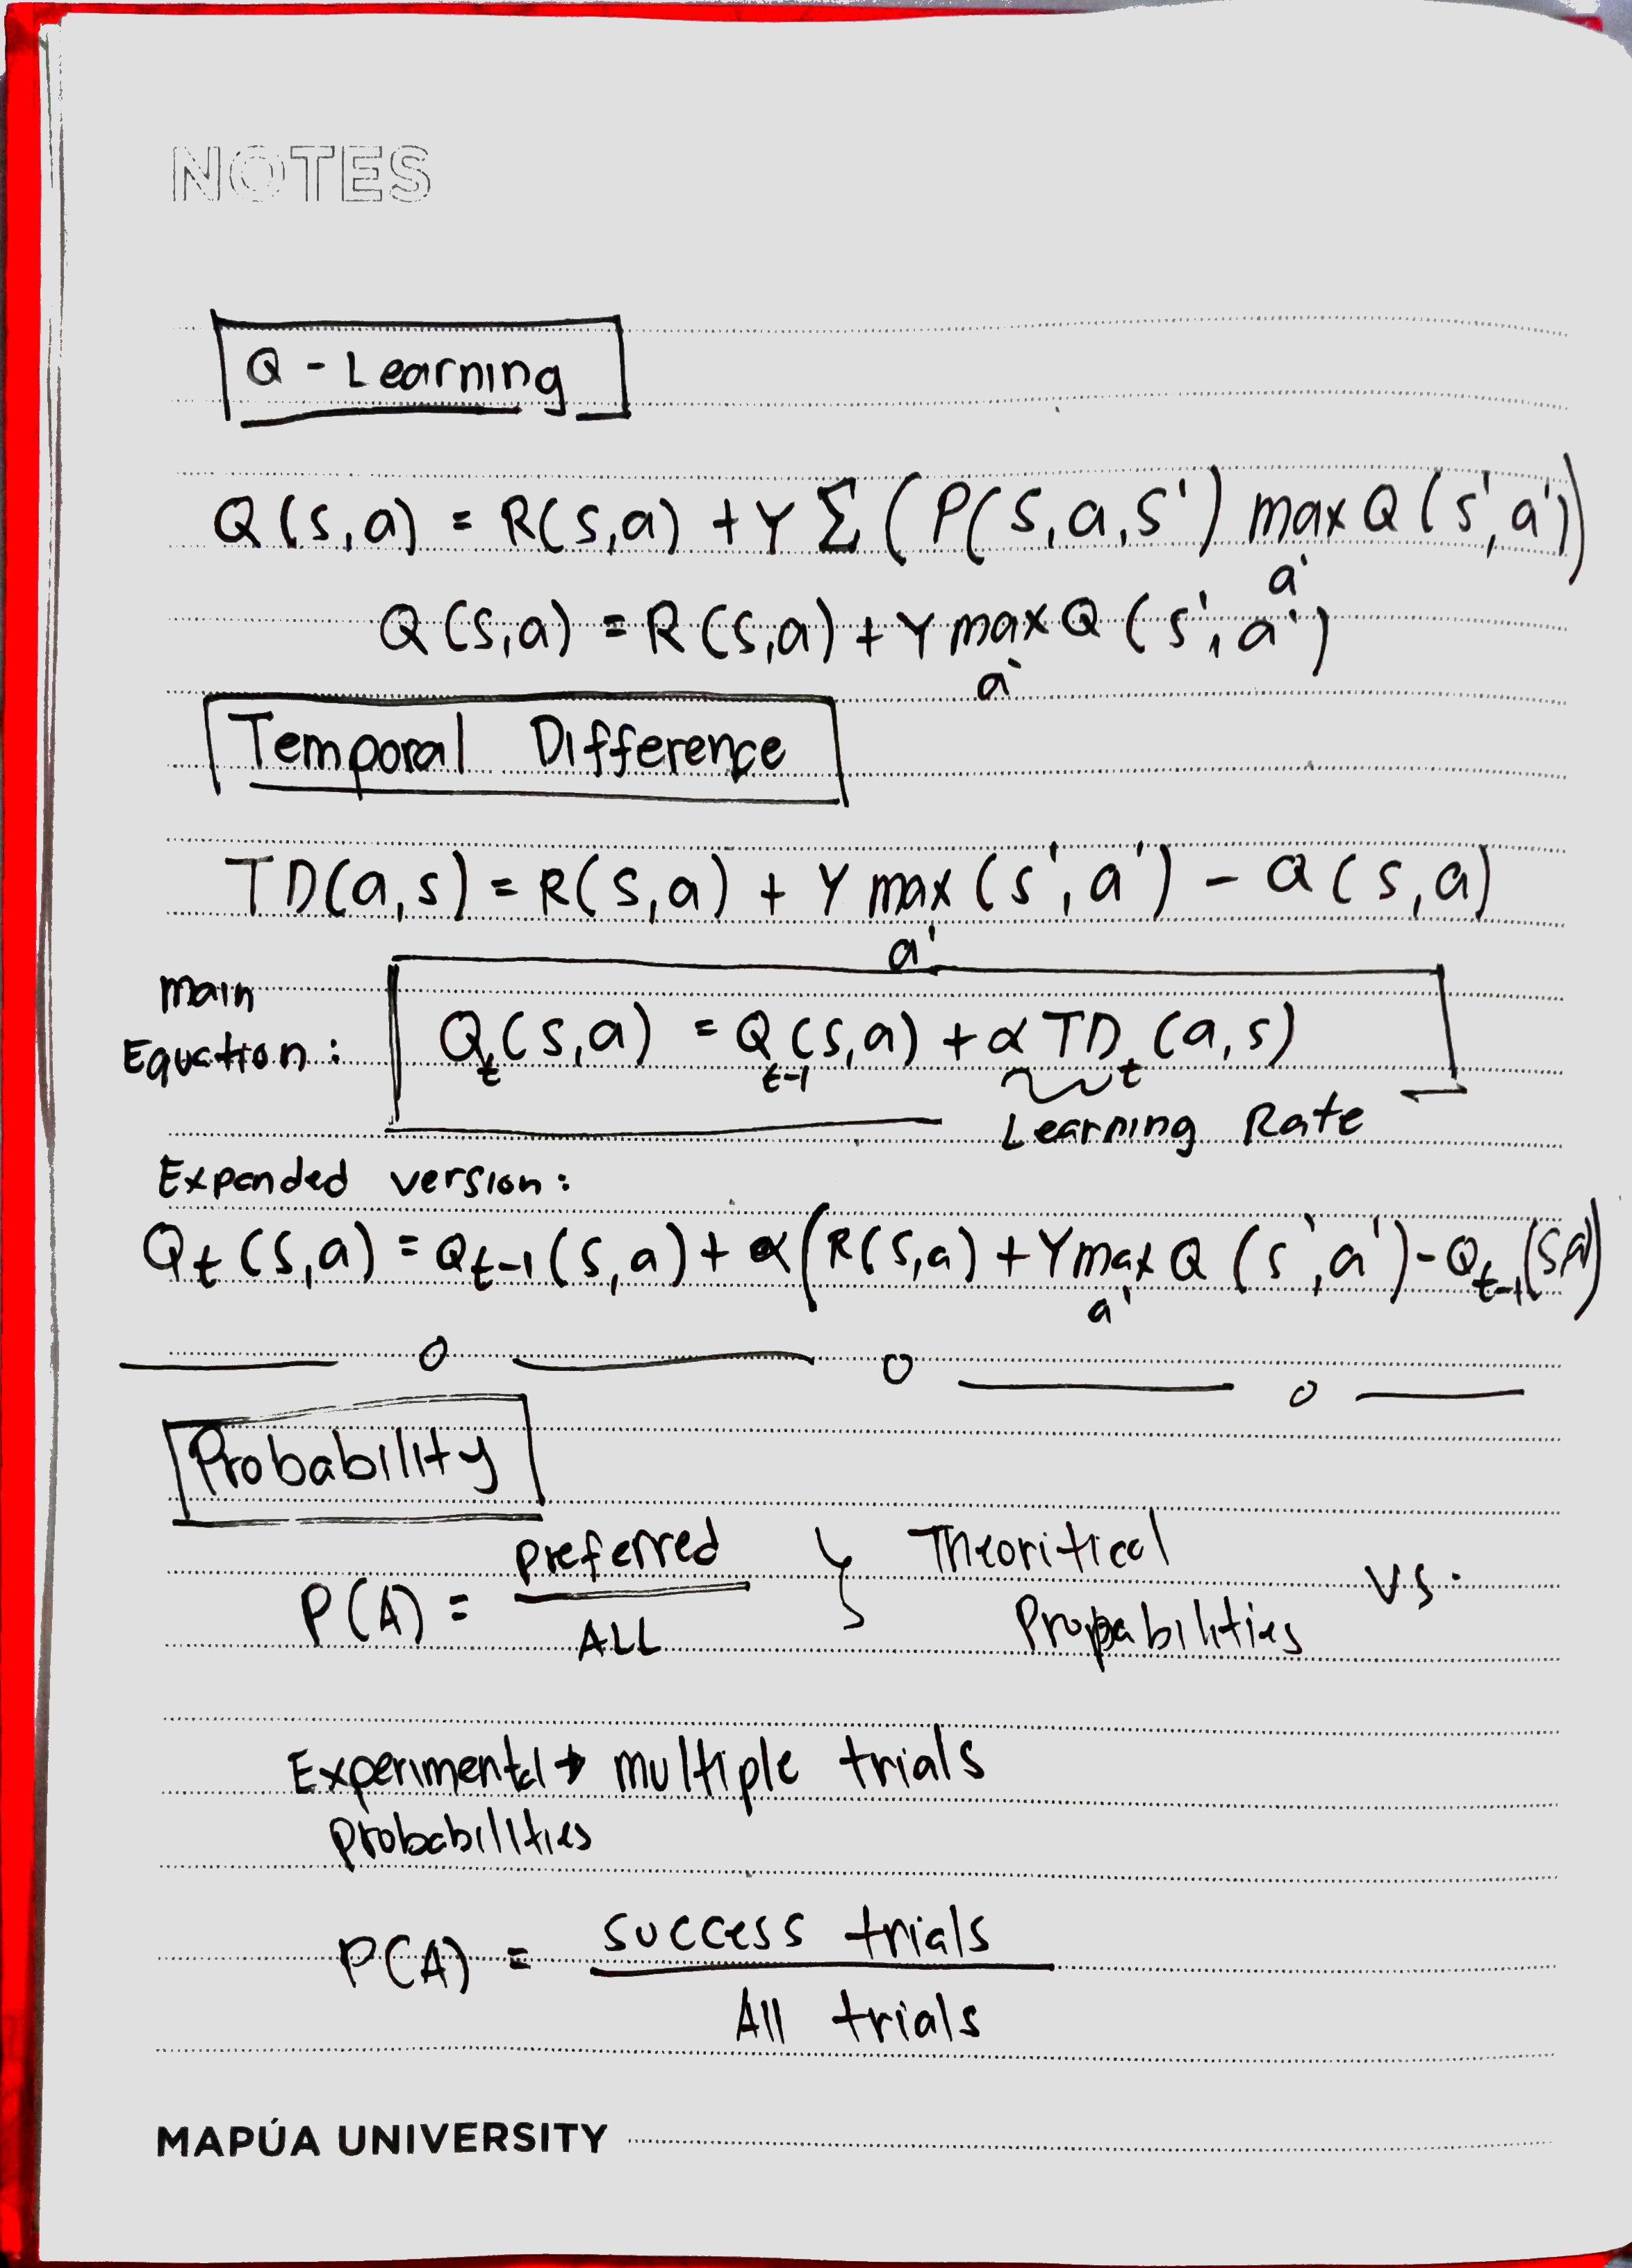 NOTES
Q - Learning
Q(s,a) = R(s,a) + γ Σ (P(s,a,s') max Q(s',a'))
a'
Q(s,a) = R(s,a) + γ max Q(s',a')
a'
Temporal Difference
TD(a,s) = R(s,a) + γ max (s',a') - Q(s,a)
a'
Main
Equation: Q_t(s,a) = Q_t-1(s,a) + α TD_t(a,s)
Learning Rate
Expanded version:
Q_t(s,a) = Q_t-1(s,a) + α(R(s,a) + γ max Q(s',a') - Q_t-1(s,a))
a'
Probability
P(A) = Preferred / ALL } Theoritical Probabilities vs.
Experimental → multiple trials
probabilities
P(A) = success trials / All trials
MAPÚA UNIVERSITY